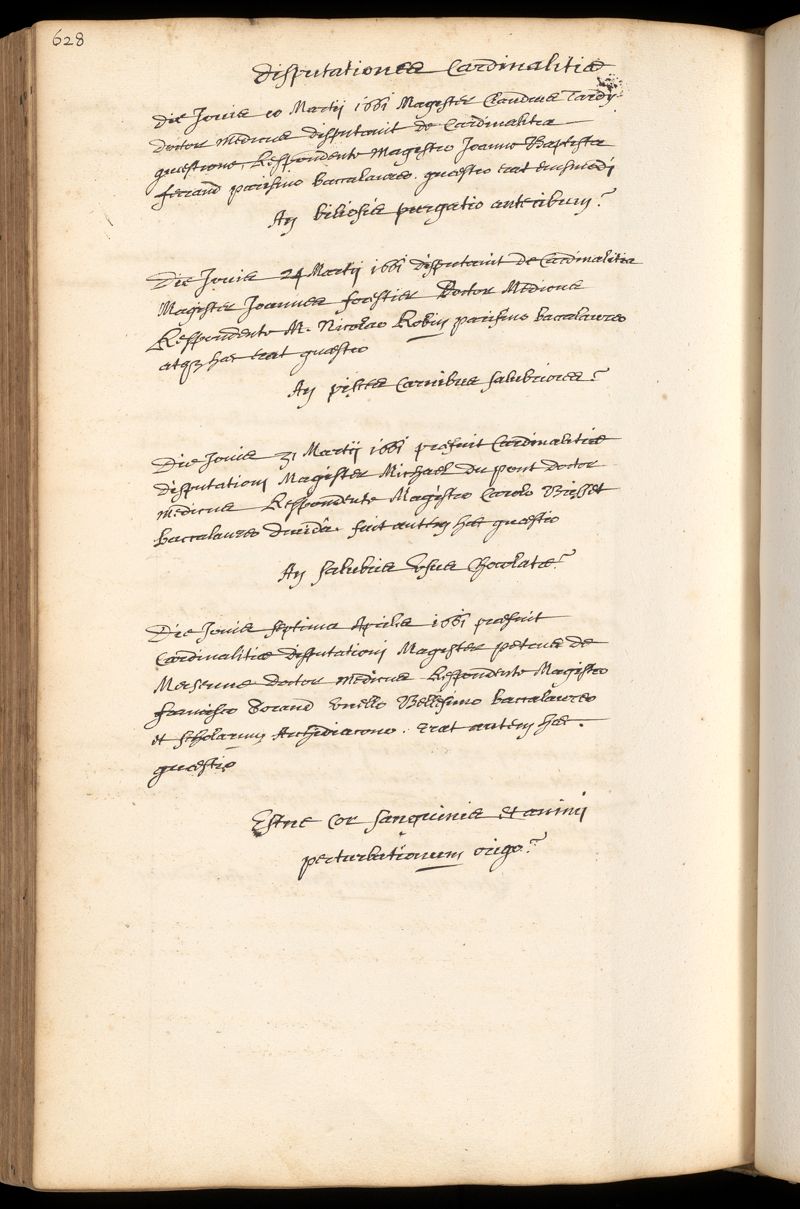 628
Disputationes Cardinalitiæ
Die Jovis 10 Martij 1661 Magister Claudius Tardy
Doctor medicus disputavit de Cardinalitia
quæstione, Respondente Magistro Joanne Baptista
ferrand parisino baccalaureo. quæstio erat eiusmodi
An biliosis purgatio ante cibum?
Die Jovis 24 Martij 1661 disputavit de Cardinalitia
Magister Joannes forestier Doctor Medicus
Respondente M. Nicolao Robin parisino baccalaureo
atq3 hæc erat quæstio
An pisces Carnibus salubriores?
Die Jovis 31 Martij 1661 præfuit Cardinalitiæ
disputationi Magister Michael Du pont Doctor
medicus Respondente Magistro Carolo
baccalaureo fuit autem hæc quæstio
An salubris Vsus Chocolatæ?
Die Jovis septima Aprilis 1661 præfuit
Cardinalitiæ disputationi Magister petrus de
Mersenne Doctor medicus Respondente Magistro
francisco baccalaureo
et scholarum Archidiacono. erat autem hæc
quæstio
Estne Cor sanguinis et animi
perturbationum origo?